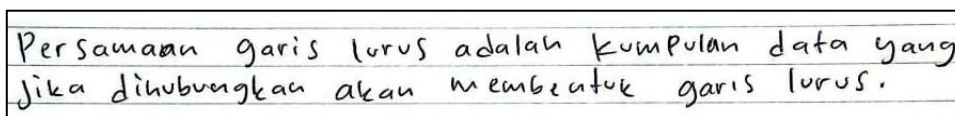 Persamaan garis lurus adalah kumpulan data yang
jika dihubungkan akan membentuk garis lurus.